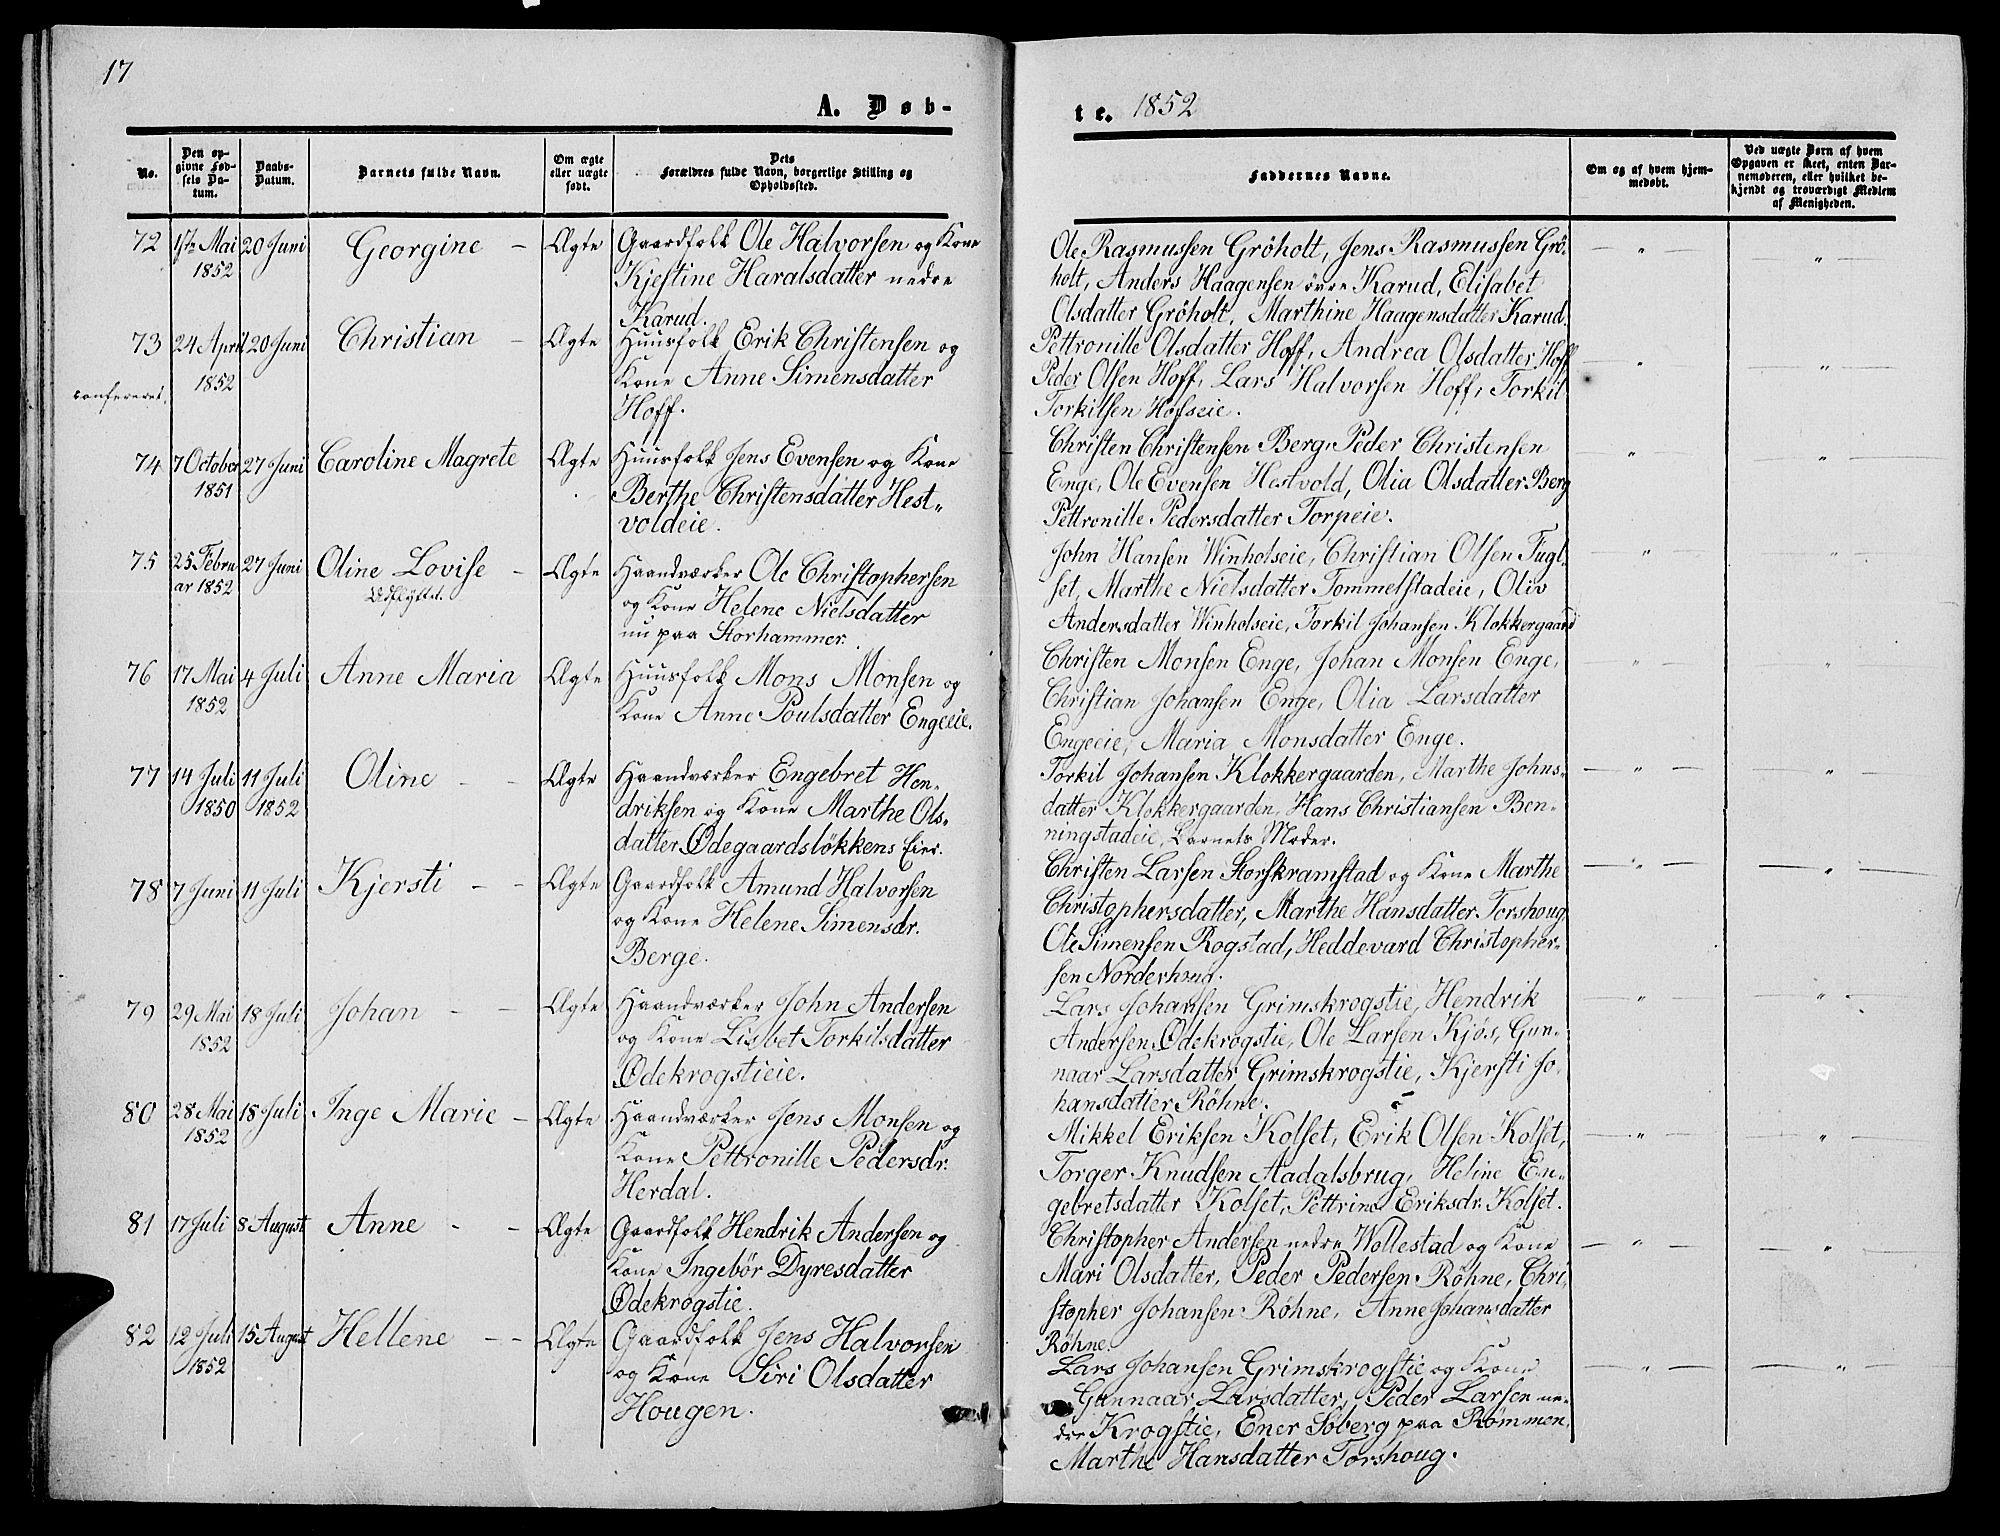 17
A. Døb-
No.
Den op-
givne Fød-
sels Da-
tum.
Daabs-
Datum.
Barnets fulde Navn.
Om ægte
eller uægte
født.
Dets
Forældres fulde Navn, borgerlige Stilling og
Opholdssted.
72 1ste Mai 20 Juni Georgine - Ægte Gaardfolk Ole Halvorsen og Kone
1852 Kjestine Haralsdatter nedre
Karud.
73 24 April 20 Juni Christian - Ægte Huusfolk Erik Christensen og
1852 Kone Anne Simensdatter
confereret. Hoff.
74 7 October 27 Juni Caroline Magrete Ægte Huusfolk Jens Evensen og Kone
1851 Berthe Christensdatter Hest-
voldeie.
75 25 Febru 27 Juni Oline Lovise - Ægte Haandværker Ole Christophersen
ar 1852 Udflyttet. og Kone Helene Nielsdatter
nu paa Storhammer.
76 17 Mai 4 Juli Anne Maria Ægte Huusfolk Mons Monsen og
1852 Kone Anne Poulsdatter Engeeie.
77 14 Juli 11 Juli Oline - - Ægte Haandværker Engebret Hen-
1850 1852 driksen og Kone Marthe Ols-
datter Ødegaardsløkkens Eier.
78 7 Juni 11 Juli Kjersti - - Ægte Gaardfolk Amund Halvorsen
og Kone Helene Simensdr.
Berge.
79 29 Mai 18 Juli Johan - - Ægte Haandværker John Andersen
1852 og Kone Lisbet Torkilsdatter
Ødekrogstieie.
80 28 Mai 18 Juli Inge Marie - Ægte Haandværker Jens Monsen og
1852 Kone Pettronille Pedersdr.
Herdal.
81 17 Juli 8 August Anne - - Ægte Gaardfolk Hendrik Andersen og
Kone Ingebør Dyresdatter
Ødekrogstie.
82 12 Juli 15 August Hellene - - Ægte Gaardfolk Jens Halvorsen
1852 og Kone Siri Olsdatter
Hougen.
te. 1852
Faddernes Navne.
Om og af hvem hjem-
medøbt.
Ved uægte Børn af hvem
Opgaven er skeet, enten Bar-
nemoderen, eller hvilket be-
kjendt og troværdigt Medlem
af Menigheden.
Ole Rasmussen Grøholt, Jens Rasmussen Grø- — " — — " —
holt, Anders Haagensen øvre Karud, Elisabet
Olsdatter Grøholt, Marthine Haagensdatter Karud.
Pettronille Olsdatter Hoff, Andrea Olsdatter Hoff — " — — " —
Peder Olsen Hoff, Lars Halvorsen Hoff, Torkil
Torkilsen Hofseie.
Christen Christensen Berg, Peder Christensen — " — — " —
Enge, Ole Evensen Hestvold, Olia Olsdatter Berg
Pettronille Pedersdatter Torpeie.
John Hansen Winholseie, Christian Olsen Fugl- — " — — " —
set, Marthe Nielsdatter Tommelstadeie, Oliv
Andersdatter Winholseie, Torkil Johansen Klokkergaard
Christen Monsen Enge, Johan Monsen Enge, — " — — " —
Christian Johansen Enge, Olia Larsdatter
Engeeie, Maria Monsdatter Enge.
Torkil Johansen Klokkergaarden, Marthe Johns- — " — — " —
datter Klokkergaarden, Hans Christiansen Ben-
ningstadeie, Barnets Moder.
Christen Larsen Storskramstad og Kone Marthe — " — — " —
Christophersdatter, Marthe Hansdatter Torshoug
Ole Simensen Rogstad, Heddevard Christopher-
sen Norderhaug.
Lars Johansen Grimskrogstie, Hendrik — " — — " —
Andersen Ødekrogstie, Ole Larsen Kjøs, Gun-
naar Larsdatter Grimskrogstie, Kjersti Jo-
hansdatter Røhne.
Mikkel Eriksen Kolset, Erik Olsen Kolset, — " — — " —
Torger Knudsen Aadalsbrug, Heline En-
gebretsdatter Kolset, Pettrine Eriksdr. Kolset.
Christopher Andersen nedre Wollestad og Kone — " — — " —
Mari Olsdatter, Peder Pedersen Røhne, Chri-
stopher Johansen Røhne, Anne Johansdatter
Røhne.
Lars Johansen Grimskrogstie og Kone — " — — " —
Gunnaar Larsdatter, Peder Larsen ne-
dre Krogstie, Ener Søberg paa Rømmen,
Marthe Hansdatter Torshoug.